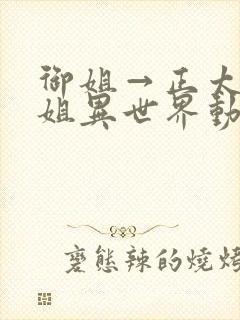 御姐→正太
姐異世界動
變態辣的燒烤